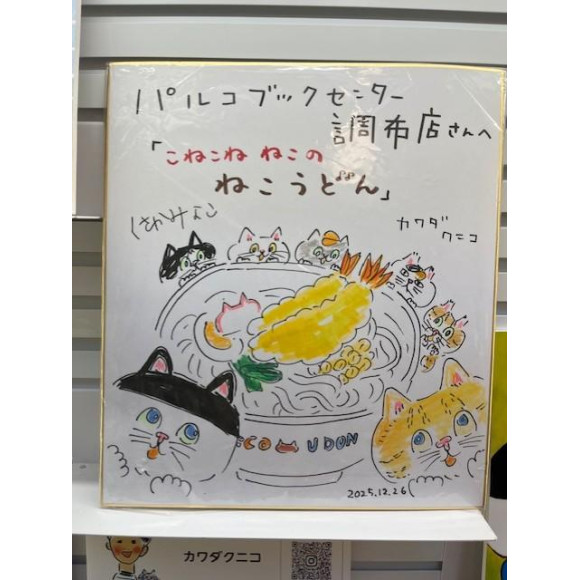 パルコブックセンター
調布店さんへ
「こねこね ねこの
ねこうどん」
カワダ
クニコ
UDON
2025.12.26
カワダクニコ